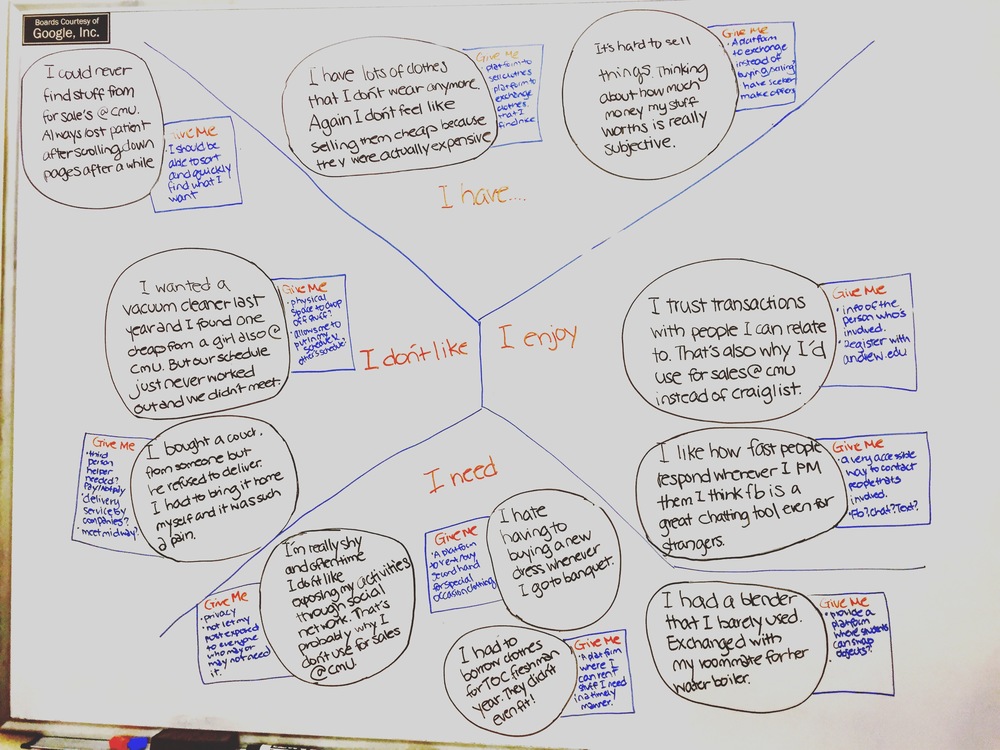 Boards Courtesy of
Google, Inc.
I could never
find stuff from
for sale's @ CMU.
Always lost patient
after scrolling down
pages after a while
Give Me
• I should be
able to sort
and quickly
find what I
want
I have lots of clothes
that I don't wear anymore.
Again I don't feel like
selling them cheap because
they were actually expensive
Give Me
platform to
sell clothes
platform to
exchange
clothes
that I
find nice
It's hard to sell
things. Thinking
about how much
money my stuff
worths is really
subjective.
Give Me
• A platform
to exchange
instead of
buying/selling?
have seekers
make offers
I have....
I wanted a
vacuum cleaner last
year and I found one
cheap from a girl also @
CMU. But our schedule
just never worked
out and we didn't meet.
Give Me
• physical
space to drop
off stuff?
• allows me to
put in my
schedule &
other's schedule?
I don't like
I enjoy
I trust transactions
with people I can relate
to. That's also why I'd
use for sales @ cmu
instead of craiglist.
Give Me
• info of the
person who's
involved.
• Register with
andrew.edu
Give Me
• third
person
helper
needed?
Pay/Not pay
• delivery
service by
companies?
• meet midway?
I bought a couch.
from someone but
he refused to deliver.
I had to bring it home
myself and it was such
a pain.
I need
I like how fast people
respond whenever I PM
them I think fb is a
great chatting tool even for
strangers.
Give Me
• a very accessible
way to contact
people thats
involved.
• Fb? Chat? Text?
Give Me
• privacy
not let my
post exposed
to everyone
who may or
may not need
it.
I'm really shy
and oftentime
I don't like
exposing my activities
through social
network. That's
probably why I
don't use for sales
@ CMU.
Give Me
• A platform
to rent/buy
second hand
for special
occasion clothing
I hate
having to
buying a new
dress whenever
I go to banquet.
I had to
borrow clothes
for TOC freshman
year. They didn't
even fit!
Give Me
• A platform
where I
can rent
stuff I need
in a timely
manner.
I had a blender
that I barely used.
Exchanged with
my roommate for her
water boiler.
Give Me
• provide a
platform
where students
can swap
objects?